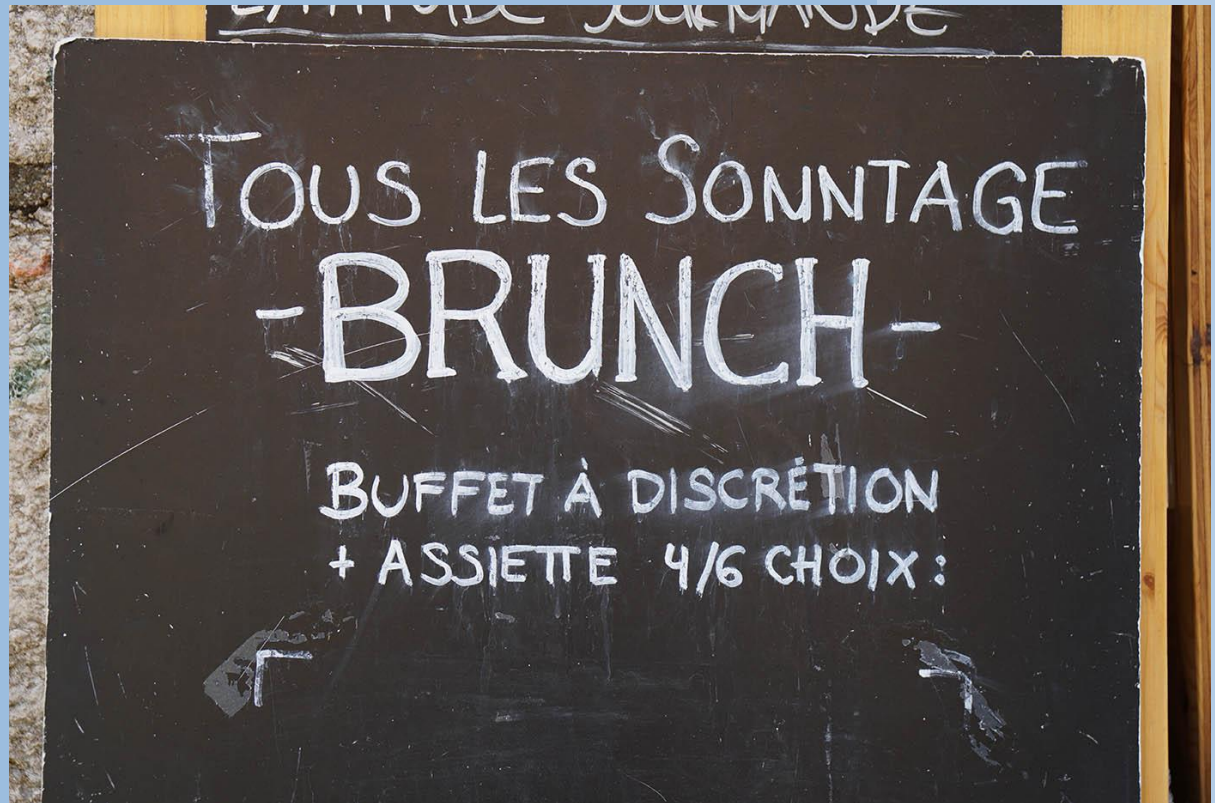 GOURMANDE
TOUS LES SONNTAGE
-BRUNCH-
BUFFET À DISCRÉTION
+ ASSIETTE 4/6 CHOIX: